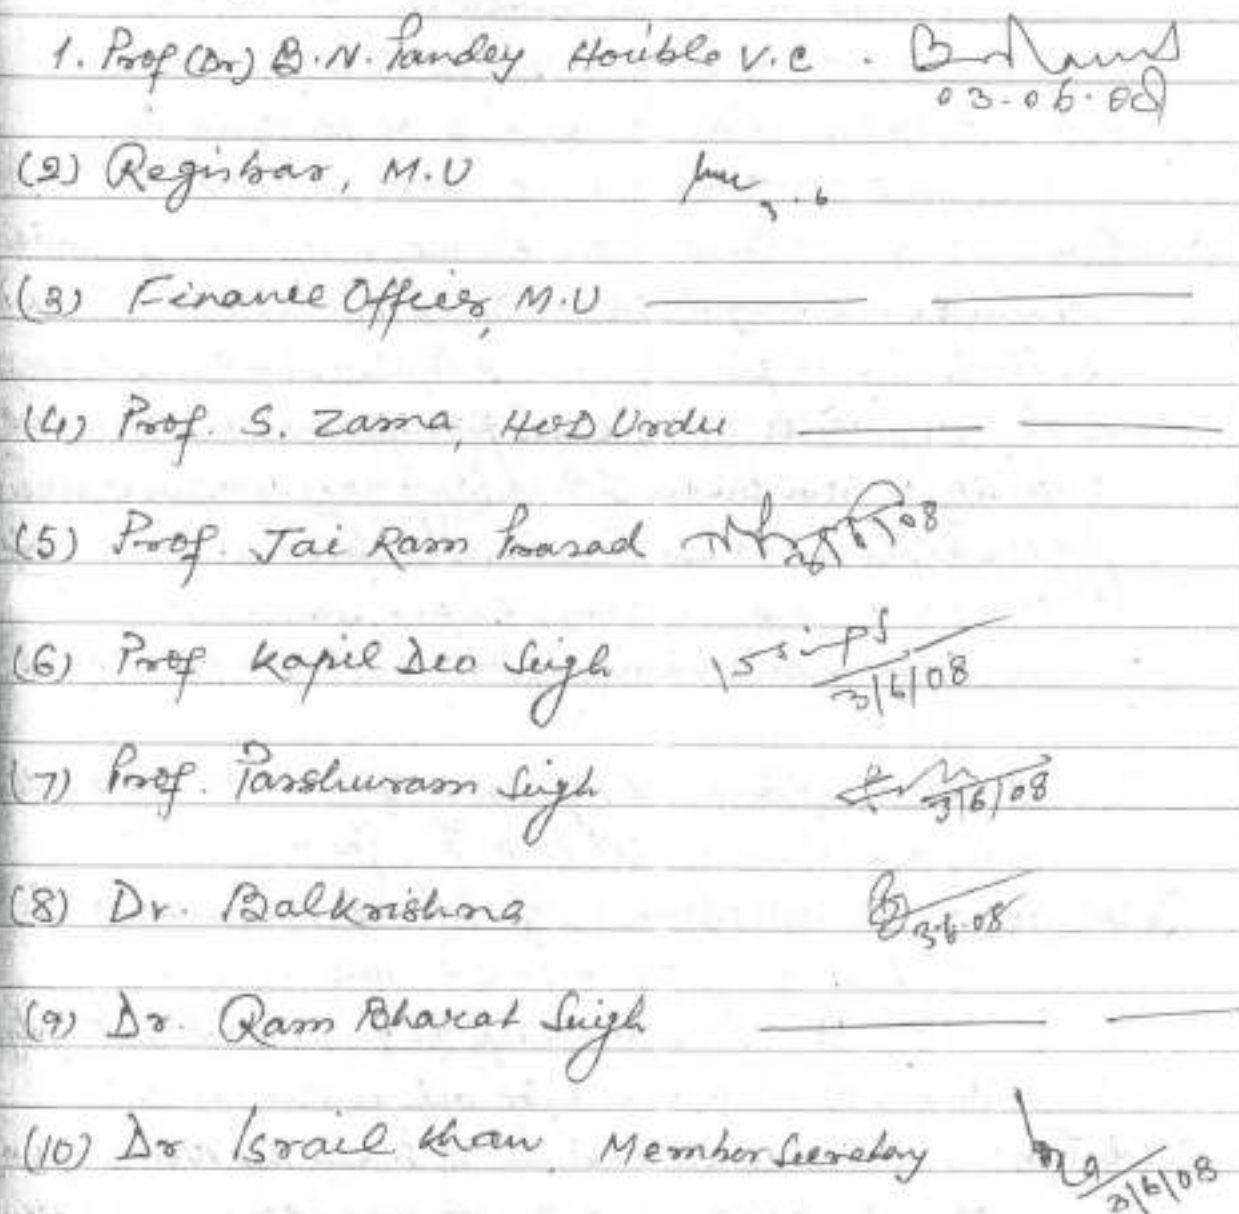 1. Prof (Dr) B.N. Pandey Hon'ble V.C.
03-06-08
(2) Registrar, M.U 3.6
(3) Finance Officer, M.U
(4) Prof. S. Zama, HOD Urdu
(5) Prof. Jai Ram Prasad 08
(6) Prof Kapil Deo Singh
3/6/08
(7) Prof. Parshuram Singh 3/6/08
(8) Dr. Balkrishna 3.6.08
(9) Dr. Ram Bharat Singh
(10) Dr Israil Khan Member Secretary
3/6/08